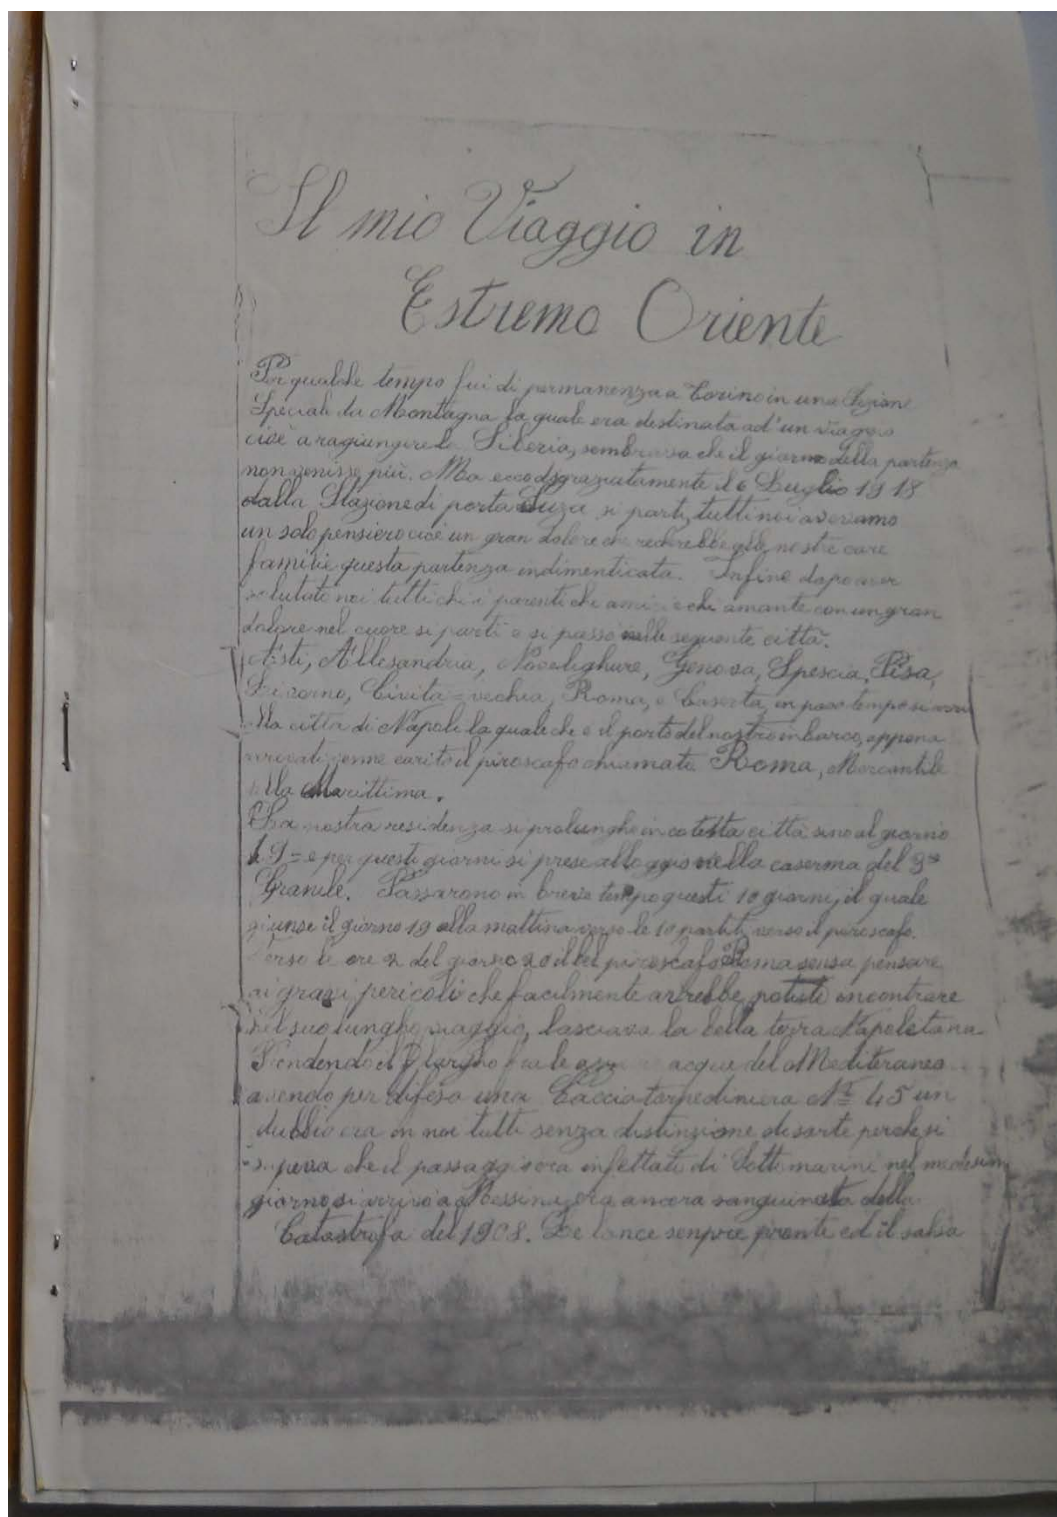 Il mio Viaggio in
Estremo Oriente
Per qualche tempo fui di permanenza a Torino in una Sezion
Speciale da Montagna la quale era destinata ad'un viaggio
cioè a ragiungere la Siberia, sembrava che il giorno della partenza
non venisse più. Ma ecco disgraziatamente il 6 Luglio 1918
dalla Stazione di porta Suza si partì, tutti noi avevamo
un solo pensiero cioè un gran dolore che recherebbe alle nostre care
famiglie questa partenza indimenticata. Infine dopo aver
salutato noi tutti chi i parenti chi amici e chi amante con un gran
dolore nel cuore si partì e si passò nelle seguente città.
Asti, Allesandria, Noveligure, Genova, Spescia, Pisa,
Livorno, Civita=vechia, Roma, e Caserta, in poco tempo si
alla città di Napoli la quale che è il porto del nostro inbarco, appena
arrivati venne carito il piroscafo chiamato Roma, Mercantile
alla Marittima.
La nostra residenza si prolunghò in cotesta città sino al giorno
19= e per questi giorni si prese alloggio nella caserma del 3°
Granile. Passarono in breve tempo questi 10 giorni, il quale
giunse il giorno 19 alla mattina verso le 10 partiti verso il piroscafo.
Verso le ore 2 del giorno 20 il bel piroscafo Roma sensa pensare
ai gravi pericoli che facilmente avrebbe potuto incontrare
nel suo lungho viaggio, lasciava la bella terra Napoletana
Prendendo il largho fra le acque del Mediteraneo
avendo per difesa una Cacciatorpediniera Nº 45 un
dubbio era in noi tutti senza distinzione di sorte perchè si
sapeva che il passaggio era infettato di Sottomarini nel medesim
giorno si arrivò a Messina, era ancora sanguinata della
Catastrofa del 1908. Le lance senpre pronte ed il salva